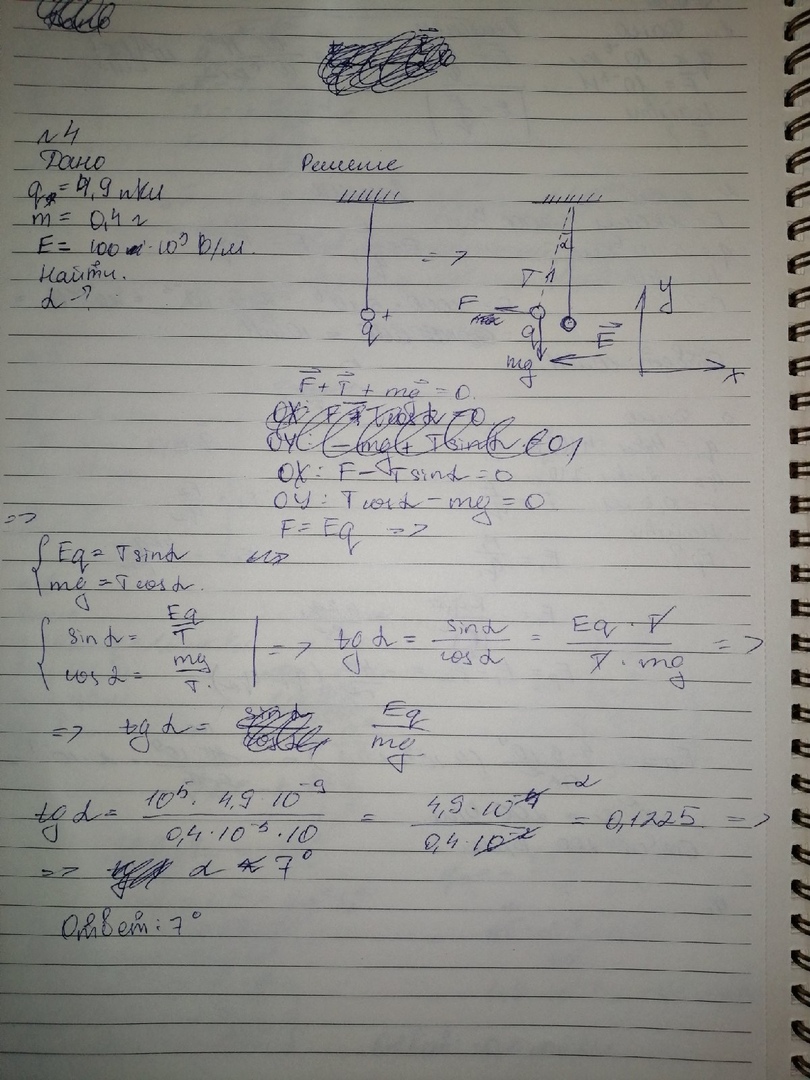 №4
Дано
Решение
q = 4,9 нКл
m = 0,4 г
E = 100 · 10³ В/м.
Найти.
α - ?
+
q
=>
α
T
F
q
mg
E
y
x
F + T + mg = 0.
OX: F - T sinα = 0
OY: T cosα - mg = 0
F = Eq =>
=>
Eq = T sinα
mg = T cosα.
sinα = Eq/T
cosα = mg/T.
=> tg α = sinα/cosα = Eq · T/T · mg =>
=> tg α = Eq/mg
tg α = 10⁵ · 4,9 · 10⁻⁹/0,4 · 10⁻³ · 10 = 4,9 · 10⁻⁴ ⁻²/0,4 · 10⁻² = 0,1225 =>
=> α ≈ 7°
Ответ: 7°